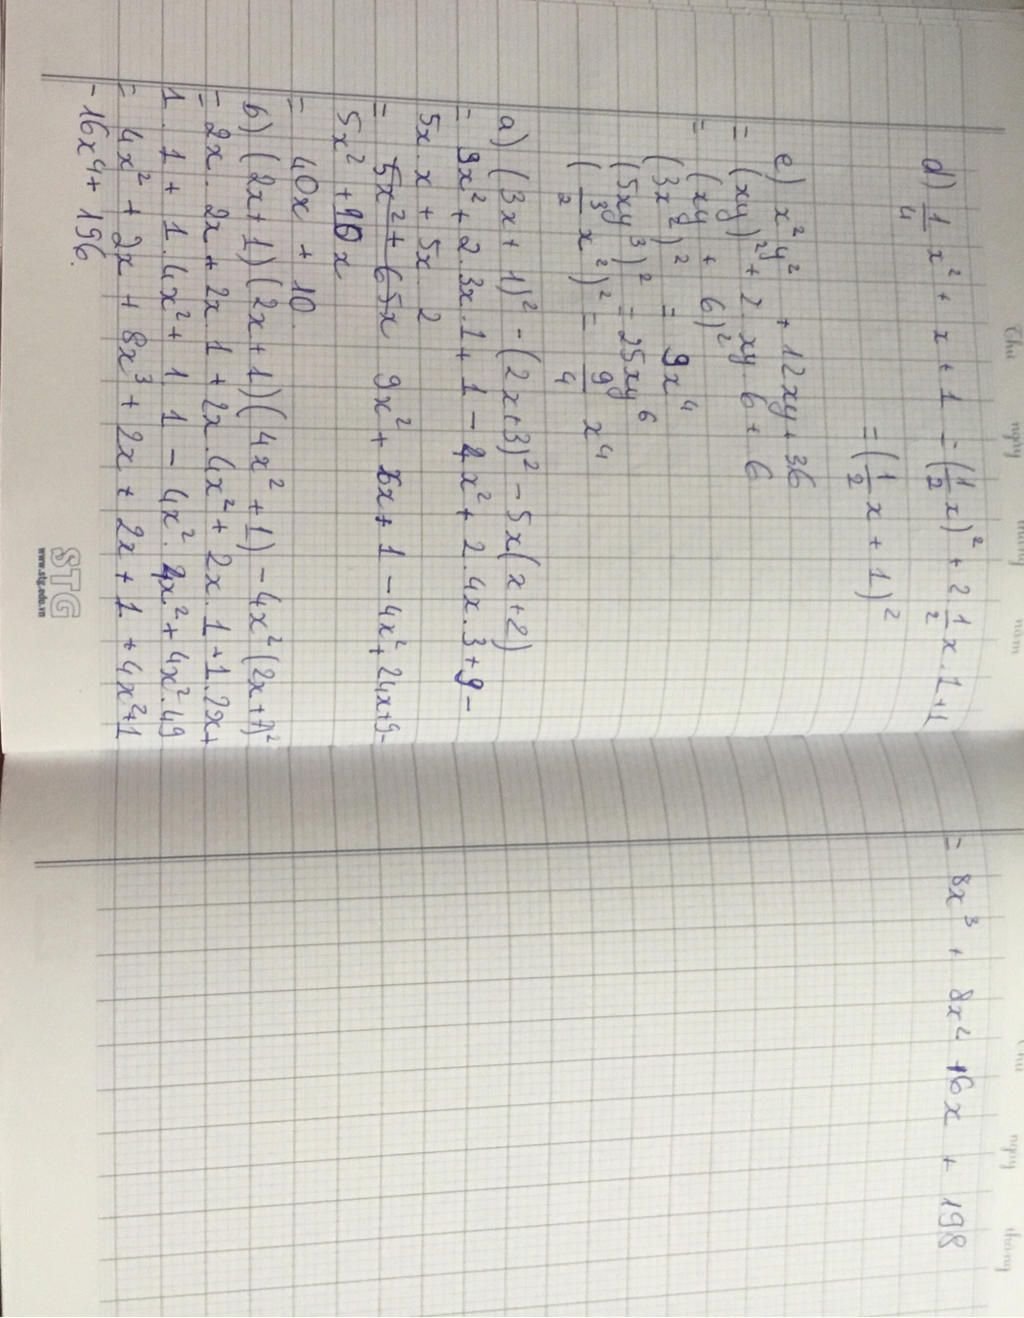 Thứ ngày tháng năm
d) 1/4 x² + x + 1 = (1/2 x)² + 2 1/2 x . 1 + 1
= (1/2 x + 1)²
e) x²y² + 12xy + 36
= (xy)² + 2 . xy . 6 + 6
= (xy + 6)²
(3x²)² = 9x⁴
(5xy³)² = 25xy⁶
(3/2 x²)² = 9/4 x⁴
a) (3x + 1)² - (2x+3)² - 5x(x+2)
= 9x² + 2.3x.1 + 1 - 4x² + 2.4x.3 + 9 -
5x.x + 5x 2
= 5x² + 65x 9x² + 6x + 1 - 4x² + 24x + 9 -
5x² + 10x
= 40x + 10.
b) (2x+1)(2x+1)(4x²+1) - 4x²(2x+7)²
= 2x.2x + 2x.1 + 2x.4x² + 2x.1 + 1.2x +
1.1 + 1.4x² + 1 1 - 4x².4x² + 4x².49
= 4x² + 2x + 8x³ + 2x + 2x + 1 + 4x² + 1
- 16x⁴ + 196.
STG
www.stg.edu.vn
Thứ ngày tháng
= 8x³ + 8x⁴ 16x + 198